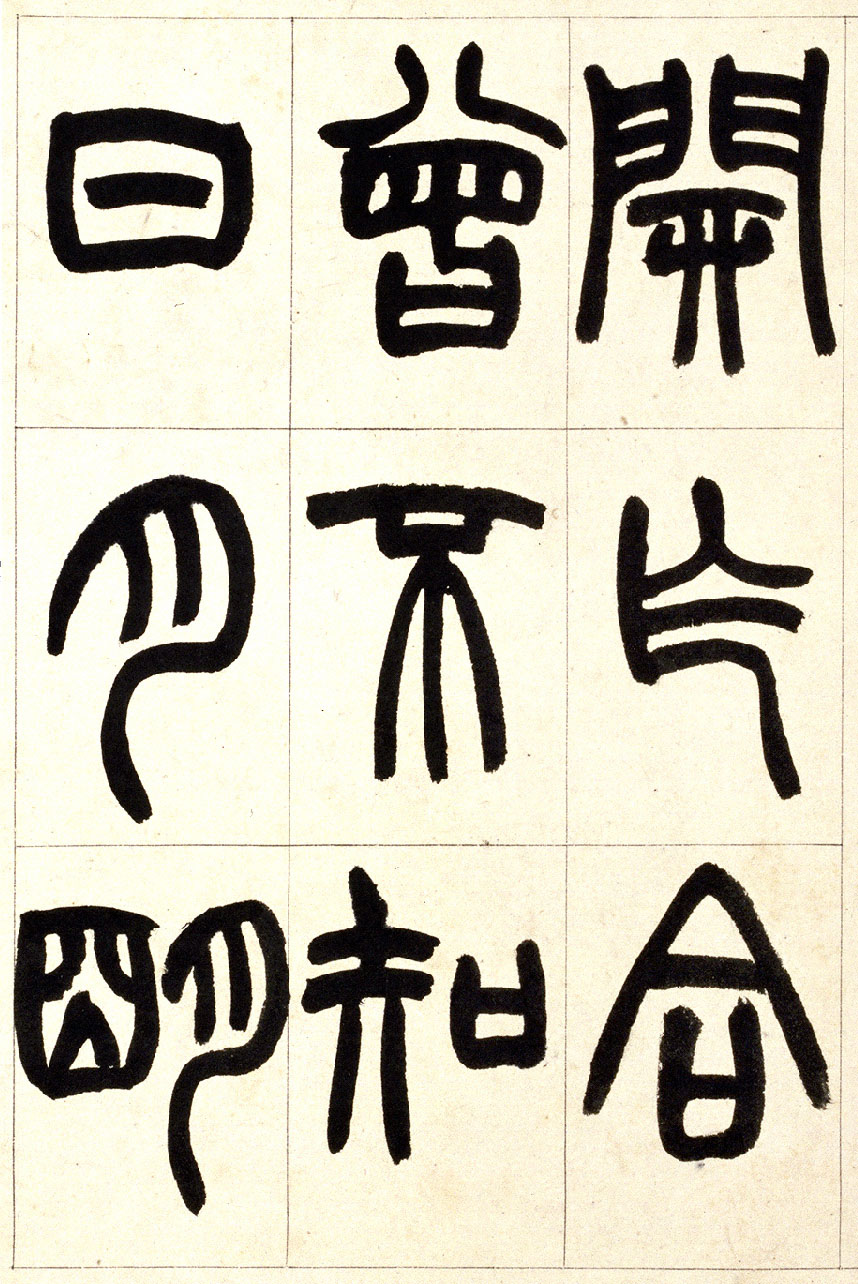 開片合
曾不知
日月明